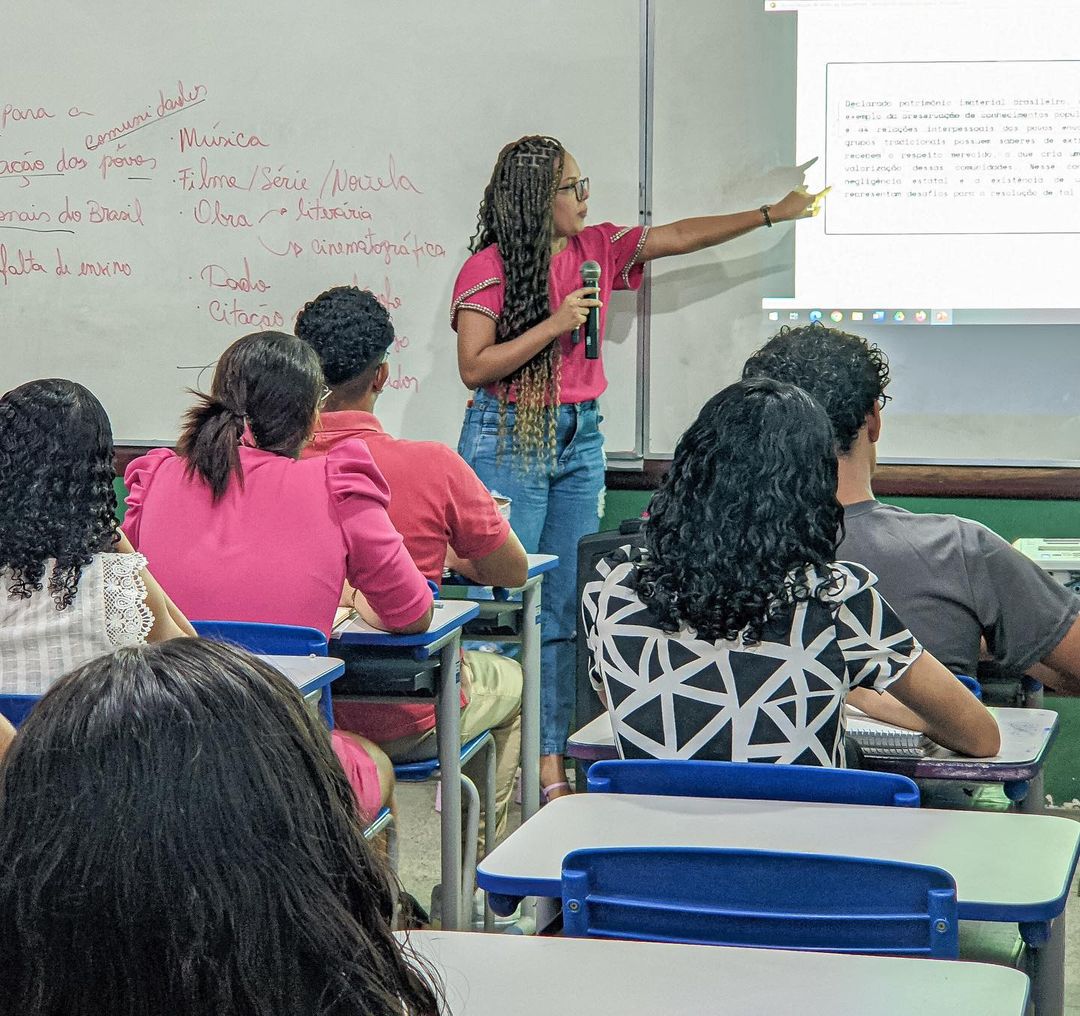 para a
comunidades
ação dos povos
onais do Brasil
falta de ensino
· Música
· Filme/Série/Novela
· Obra → literária
→ cinematográfica
· Dado
· Citação
Declarado patrimônio imaterial brasileiro,
exemplo da preservação de conhecimentos
e as relações interpessoais dos povos
grupos tradicionais possuem saberes de
recebem o respeito merecido, o que cria
valorização dessas comunidades. Nesse
negligência estatal e a existência de
representam desafios para a resolução de tal